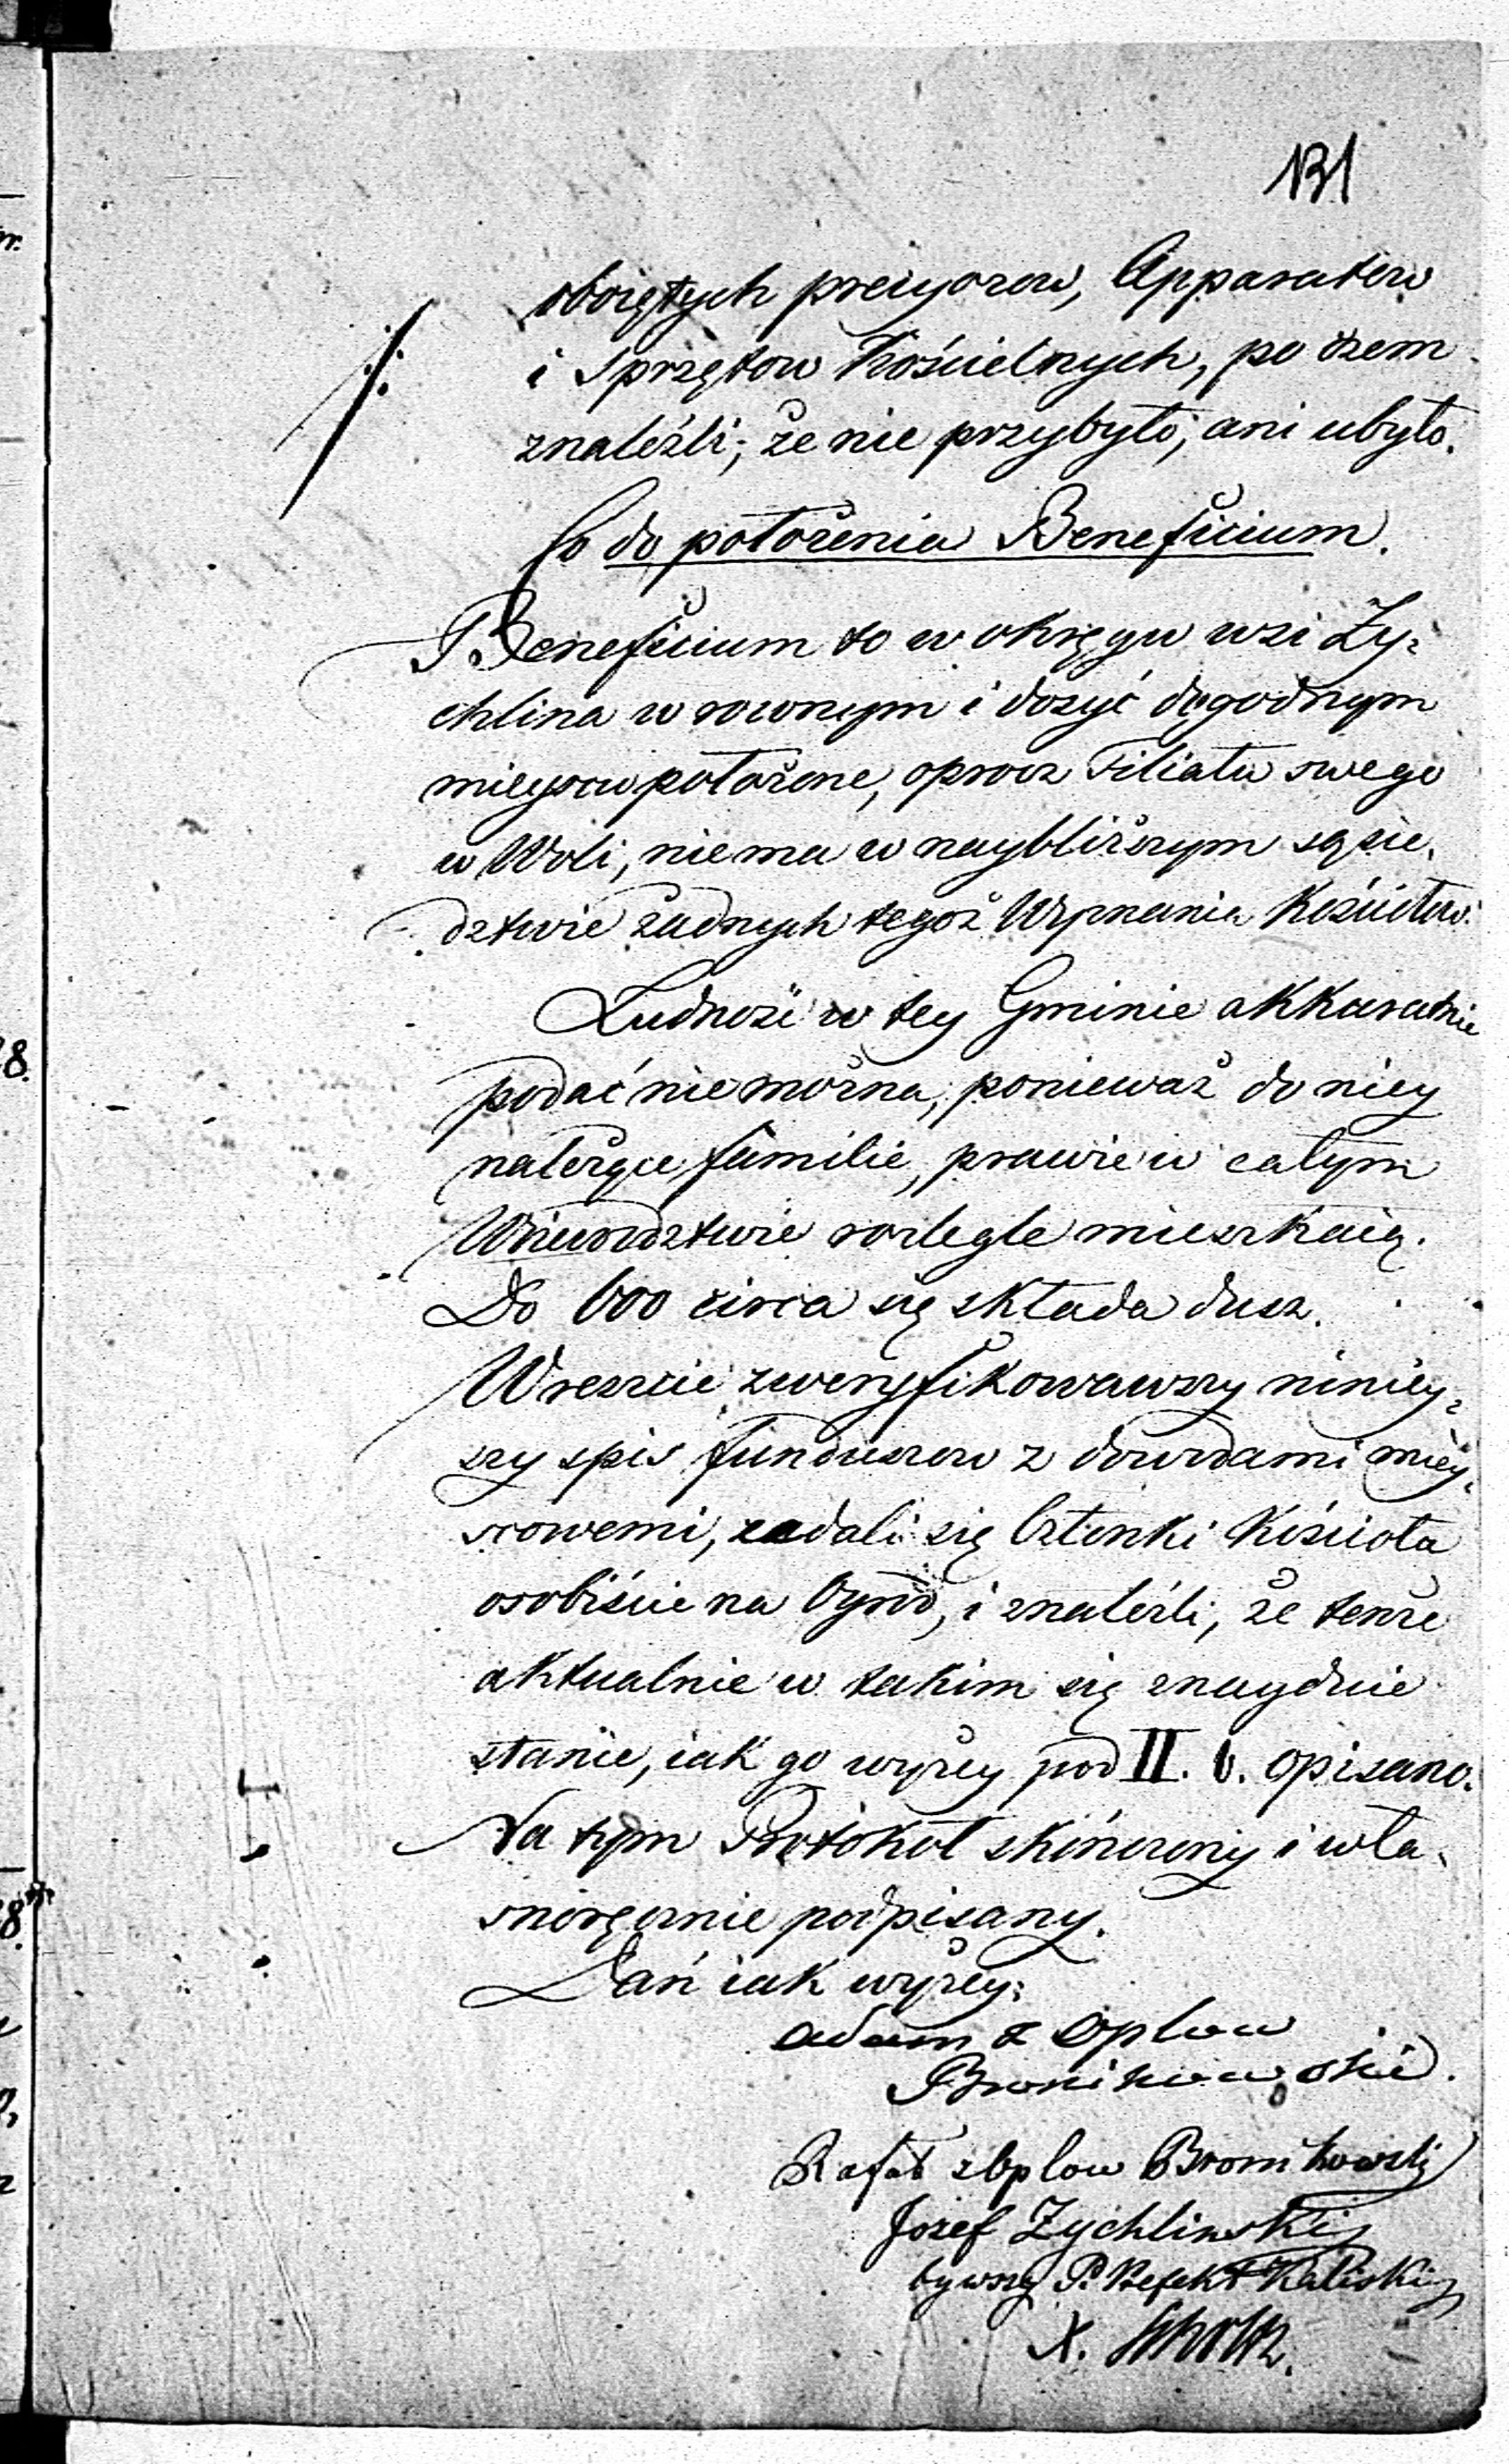 131
obiętych precyozow, Apparatow
i Sprzętow Kościelnych, po czem
znaleźli, że nie przybyło, ani ubyło.
Co do położenia Beneficium.
Beneficium to w okręgu wsi Ży-
chlina w rownym i dosyć dogodnym
mieyscu położone, oprocz Filiału swego
w Woli, niema w naybliższym sąsie-
dztwie żadnych tegoż Wyznania Kościołow.
Ludność w tey Gminie akkuratnie
podać nie można, ponieważ do niey
należące familie, prawie w całym
Woiewodztwie rozlegle mieszkaią.
Do 600 circa się składa dusz.
Wreszcie zweryfikowawszy niniey-
szy spis funduszow z dowodami miey-
scowemi, zadali się Członki Kościoła
osobiście na Ogrod, i znaleźli, że tenże
aktualnie w takim się znayduie
stanie, iak go wyżey pod II. b. opisano.
Na tym Protokół skończony i wła-
snoręcznie podpisany.
Dań iak wyżey.
Adam z Oplow
Bronikowski.
Rafał z Oplow Bronikowski
Jozef Zychlinski
bywszy P. Prefekt Kaliski
X. Scholtz.